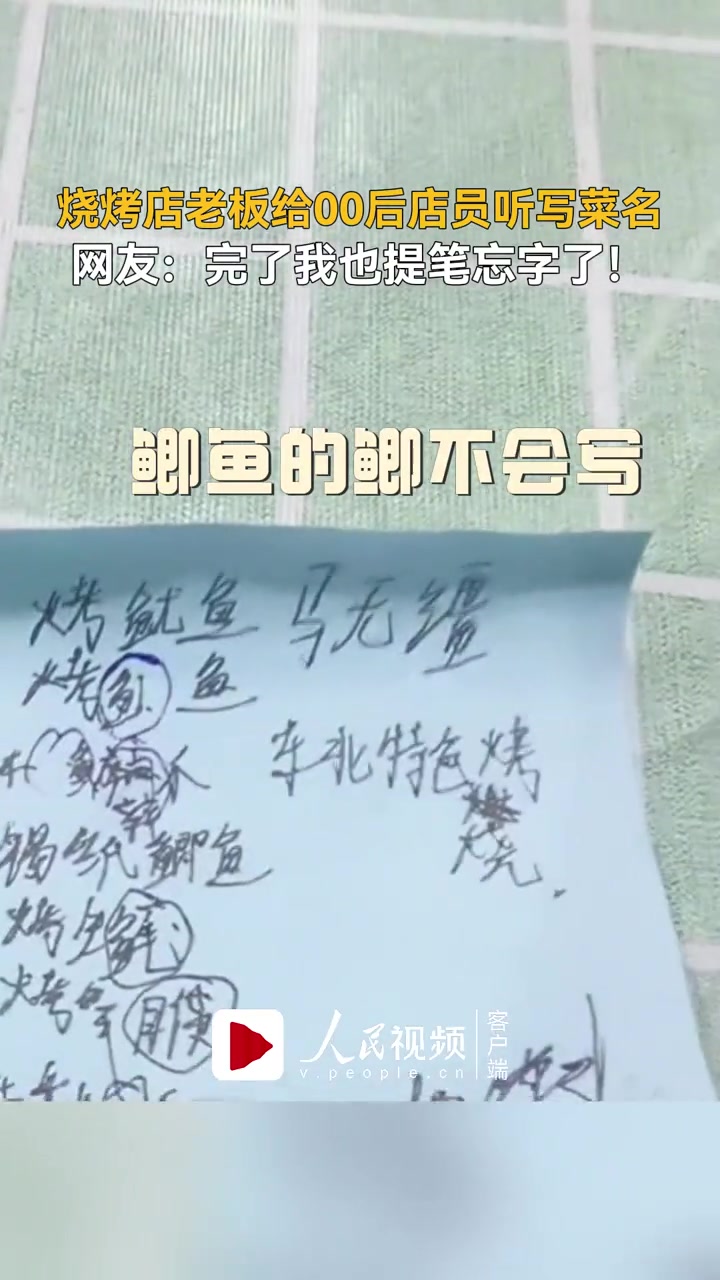 烧烤店老板给00后店员听写菜名
网友：完了我也提笔忘字了！
鲫鱼的鲫不会写
烤鱿鱼 马无缰
烤 鱼
东北特色烤
锡纸鲫鱼
烧
烤生
烤
人民视频
客户端
v.people.cn